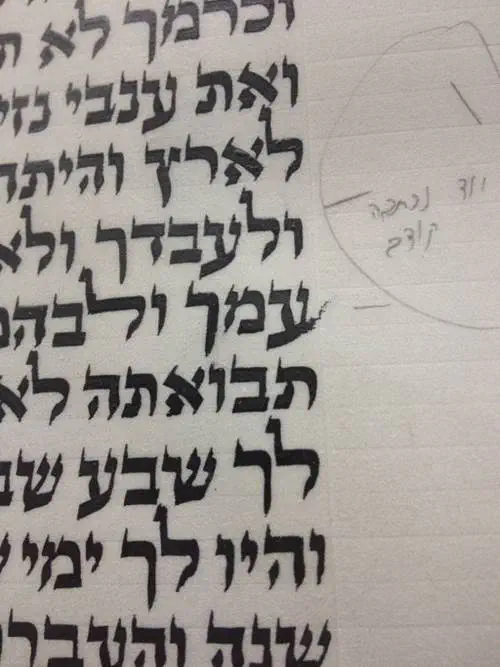 וכרמך לא ת
ואת ענבי נזי
לארץ והיתה
ולעבדך ולא
עמך ולבהמ
תבואתה לא
לך שבע שב
והיו לך ימי
שנה והעברת
יוד נכתבה
קודם